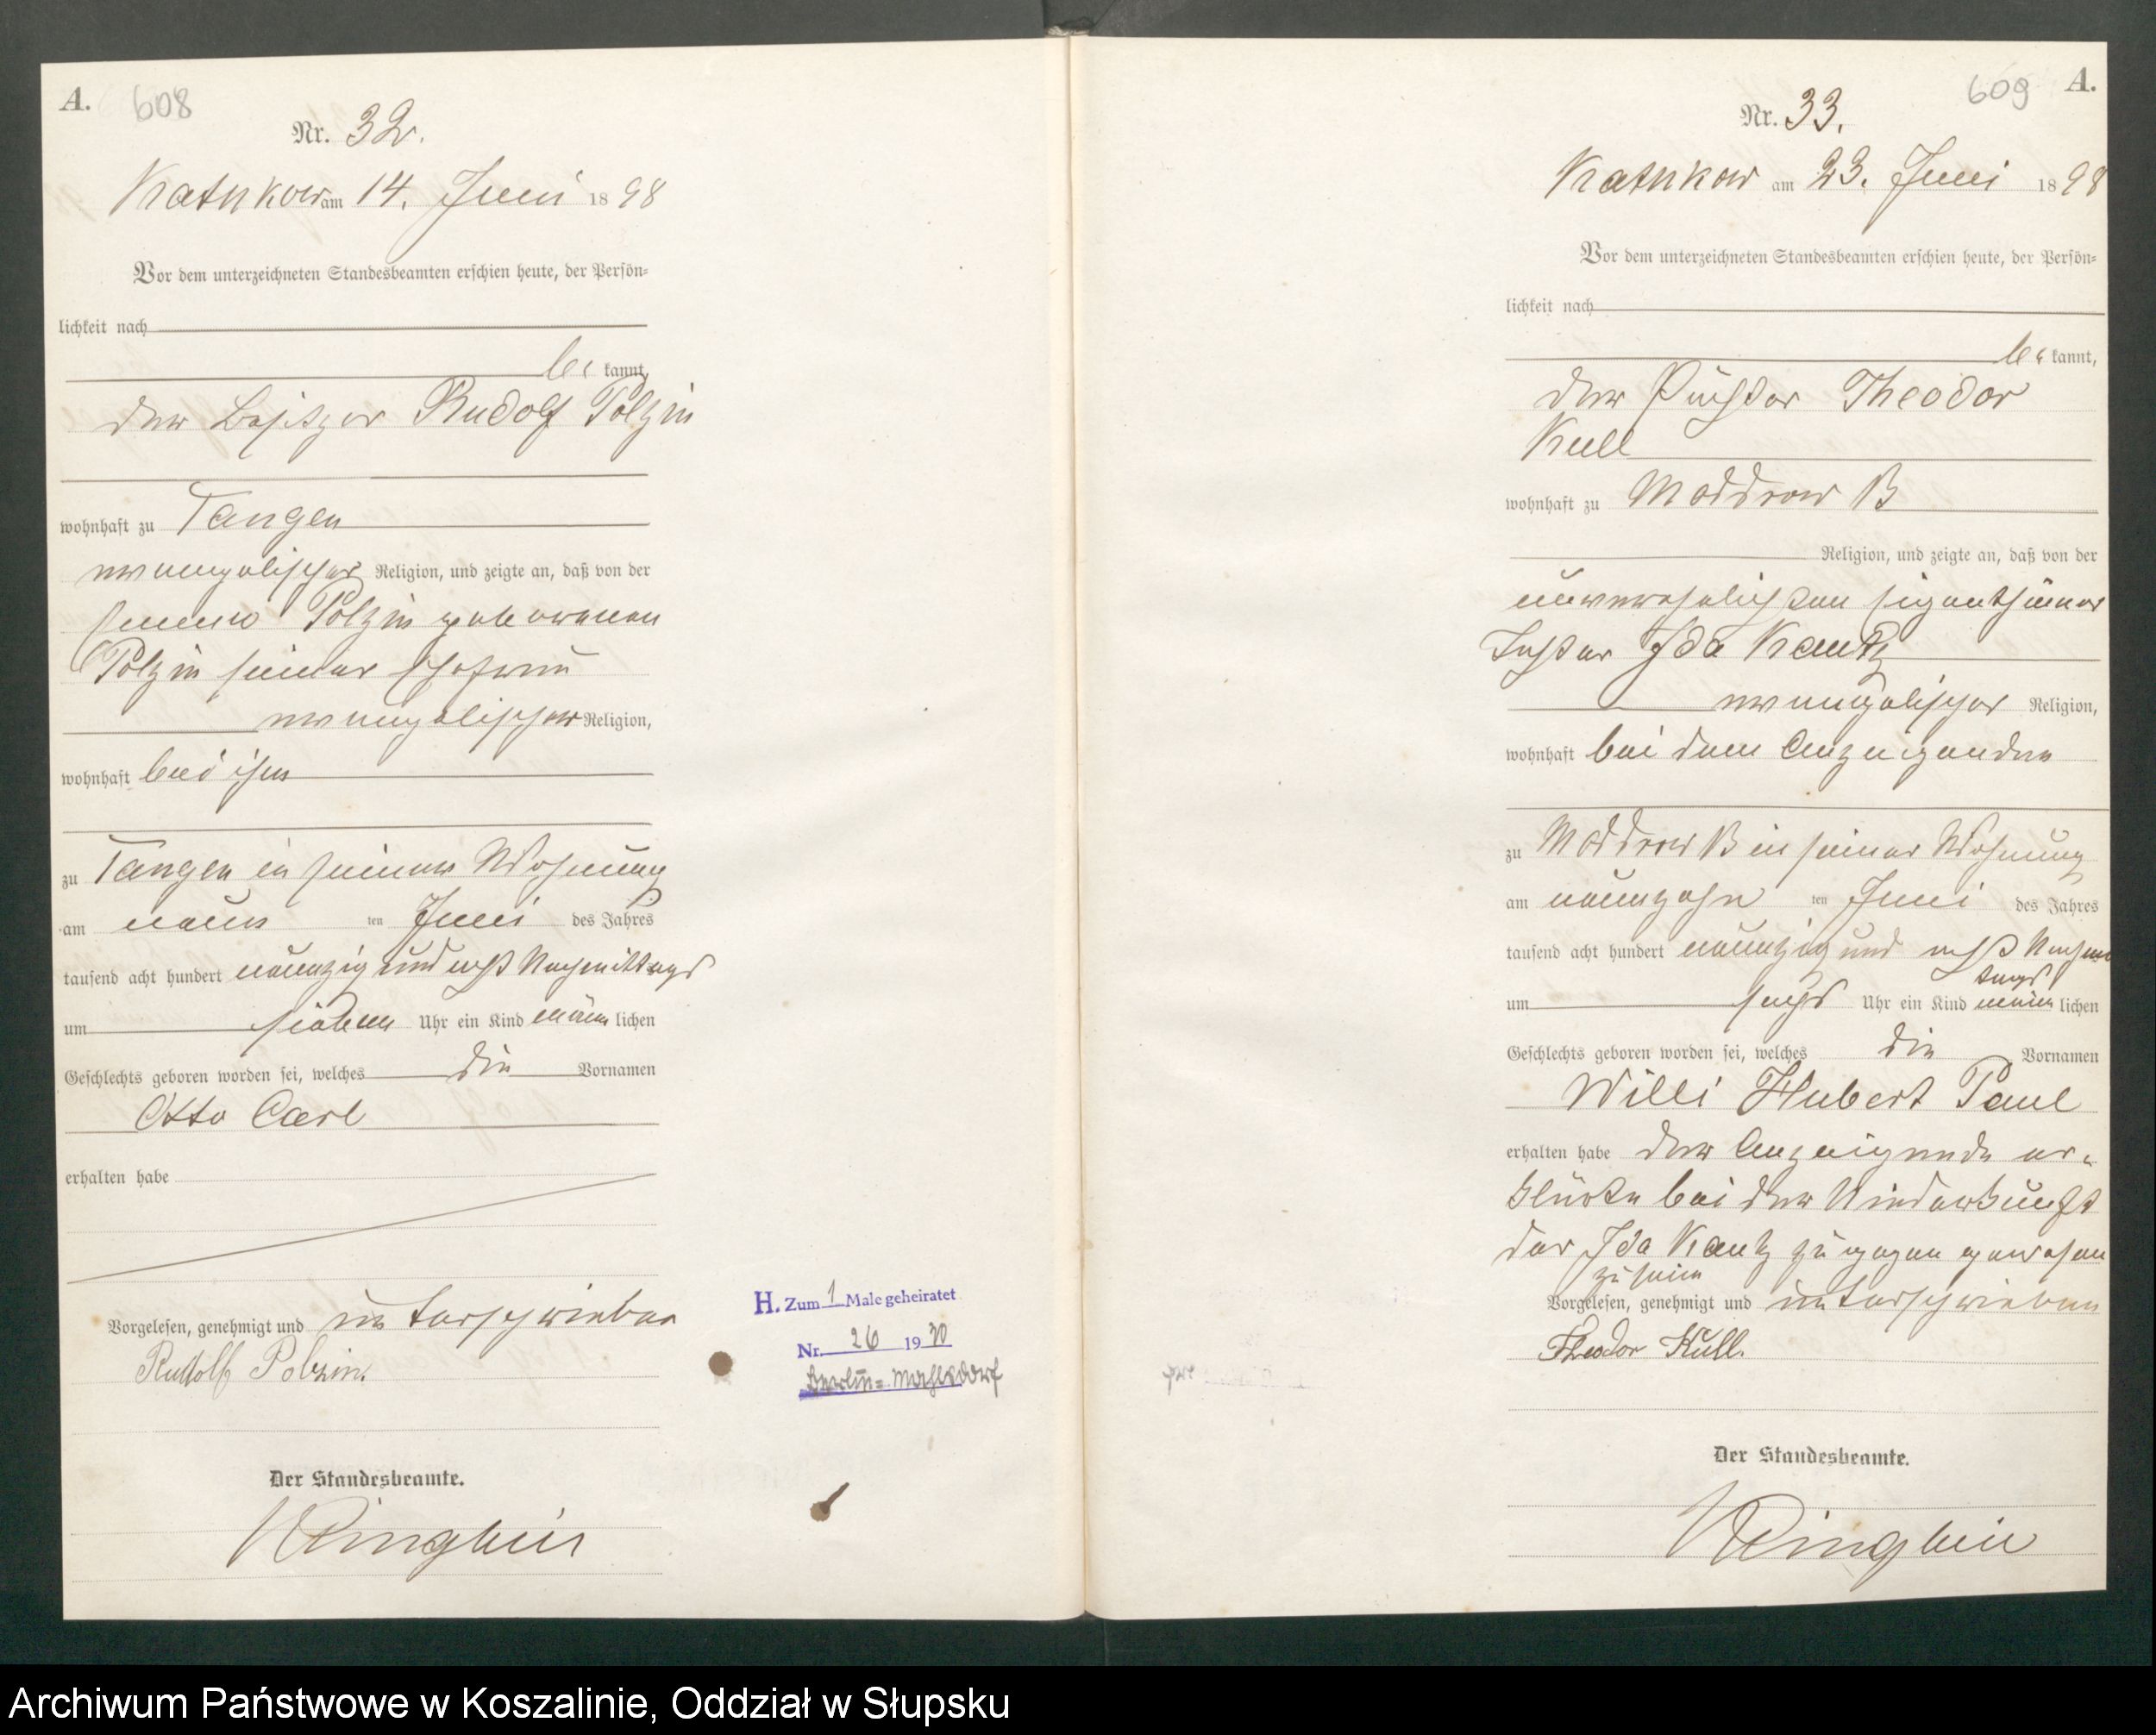 A.
608
Nr. 32.
Katkow am 14. Juni 1898
Vor dem unterzeichneten Standesbeamten erschien heute, der Persön-
lichkeit nach
be kannt,
der Besitzer Rudolf Polzin
wohnhaft zu Tangen
evangelischer Religion, und zeigte an, daß von der
Polzin geborenen
Polzin seiner Ehefrau
evangelischer Religion,
wohnhaft bei ihm
zu Tangen in seiner Wohnung
am neun ten Juni des Jahres
tausend acht hundert neunzig und acht Nachmittags
um sieben Uhr ein Kind männ lichen
Geschlechts geboren worden sei, welches die Vornamen
Otto Carl
erhalten habe
Vorgelesen, genehmigt und unterschrieben
Rudolf Polzin.
Der Standesbeamte.
H. Zum 1 Male geheiratet
Nr. 26 1930
Berlin-Mahlsdorf
A.
609
Nr. 33.
Katkow am 23. Juni 1898
Vor dem unterzeichneten Standesbeamten erschien heute, der Persön-
lichkeit nach
be kannt,
der Theodor
Kull
wohnhaft zu Moddrow B
Religion, und zeigte an, daß von der
unverehelichten Eigenthümer
Tochter Ida Kautz
evangelischer Religion,
wohnhaft bei dem Anzeigenden
zu Moddrow B in seiner Wohnung
am neunzehn ten Juni des Jahres
tausend acht hundert neunzig und acht Nachmit
tags
um sechs Uhr ein Kind männ lichen
Geschlechts geboren worden sei, welches die Vornamen
Willi Hubert Paul
erhalten habe der Anzeigende er-
klärte bei der Niederkunft
der Ida Kautz zugegen gewesen
zu sein
Vorgelesen, genehmigt und unterschrieben
Theodor Kull.
Der Standesbeamte.
Archiwum Państwowe w Koszalinie, Oddział w Słupsku